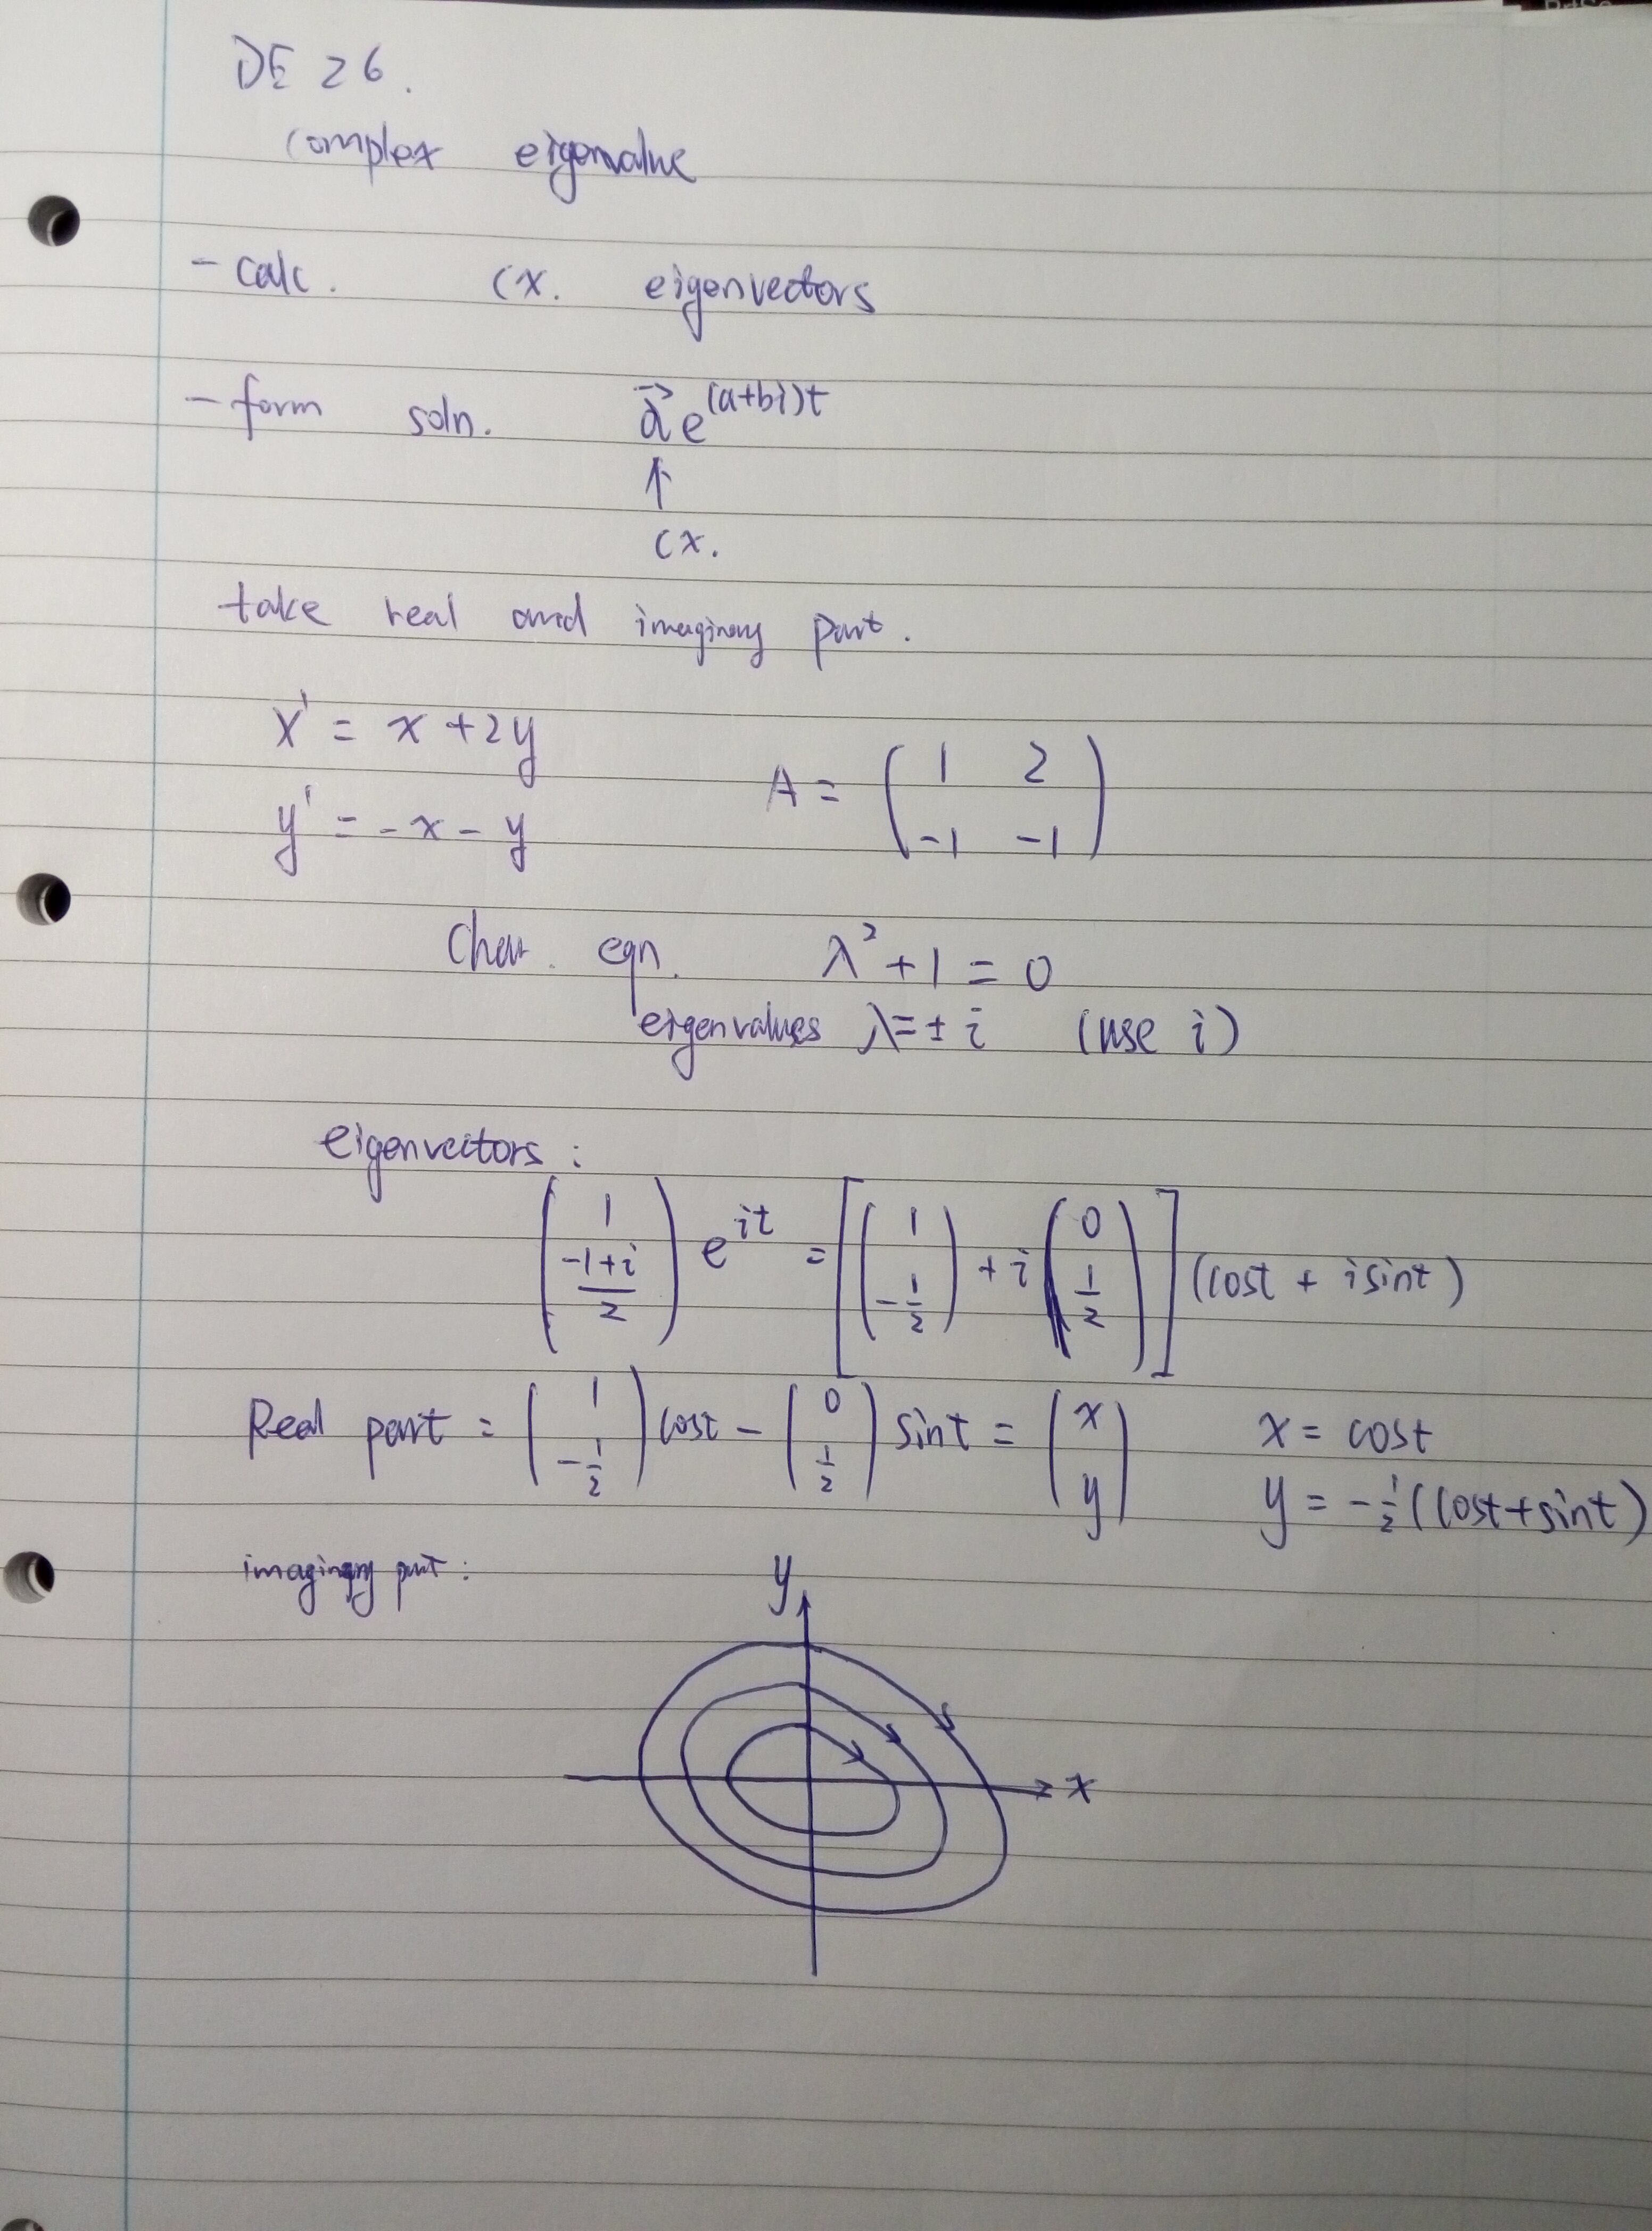 DE 26.
complex eigenvalue
- calc. cx. eigenvectors
- form soln. \vec{α} e^{(a+bi)t}
↑
cx.
take real and imaginary part.
x' = x + 2y
y' = -x - y
A = \begin{pmatrix} 1 & 2 \\ -1 & -1 \end{pmatrix}
Char. eqn. λ² + 1 = 0
eigenvalues λ = ± i (use i)
eigenvectors:
\begin{pmatrix} 1 \\ \frac{-1+i}{2} \end{pmatrix} e^{it} = \left[ \begin{pmatrix} 1 \\ -\frac{1}{2} \end{pmatrix} + i \begin{pmatrix} 0 \\ \frac{1}{2} \end{pmatrix} \right] (cost + isint)
Real part = \begin{pmatrix} 1 \\ -\frac{1}{2} \end{pmatrix} cost - \begin{pmatrix} 0 \\ \frac{1}{2} \end{pmatrix} sint = \begin{pmatrix} x \\ y \end{pmatrix}
x = cost
y = -\frac{1}{2}(cost+sint)
imaginary part:
y
x